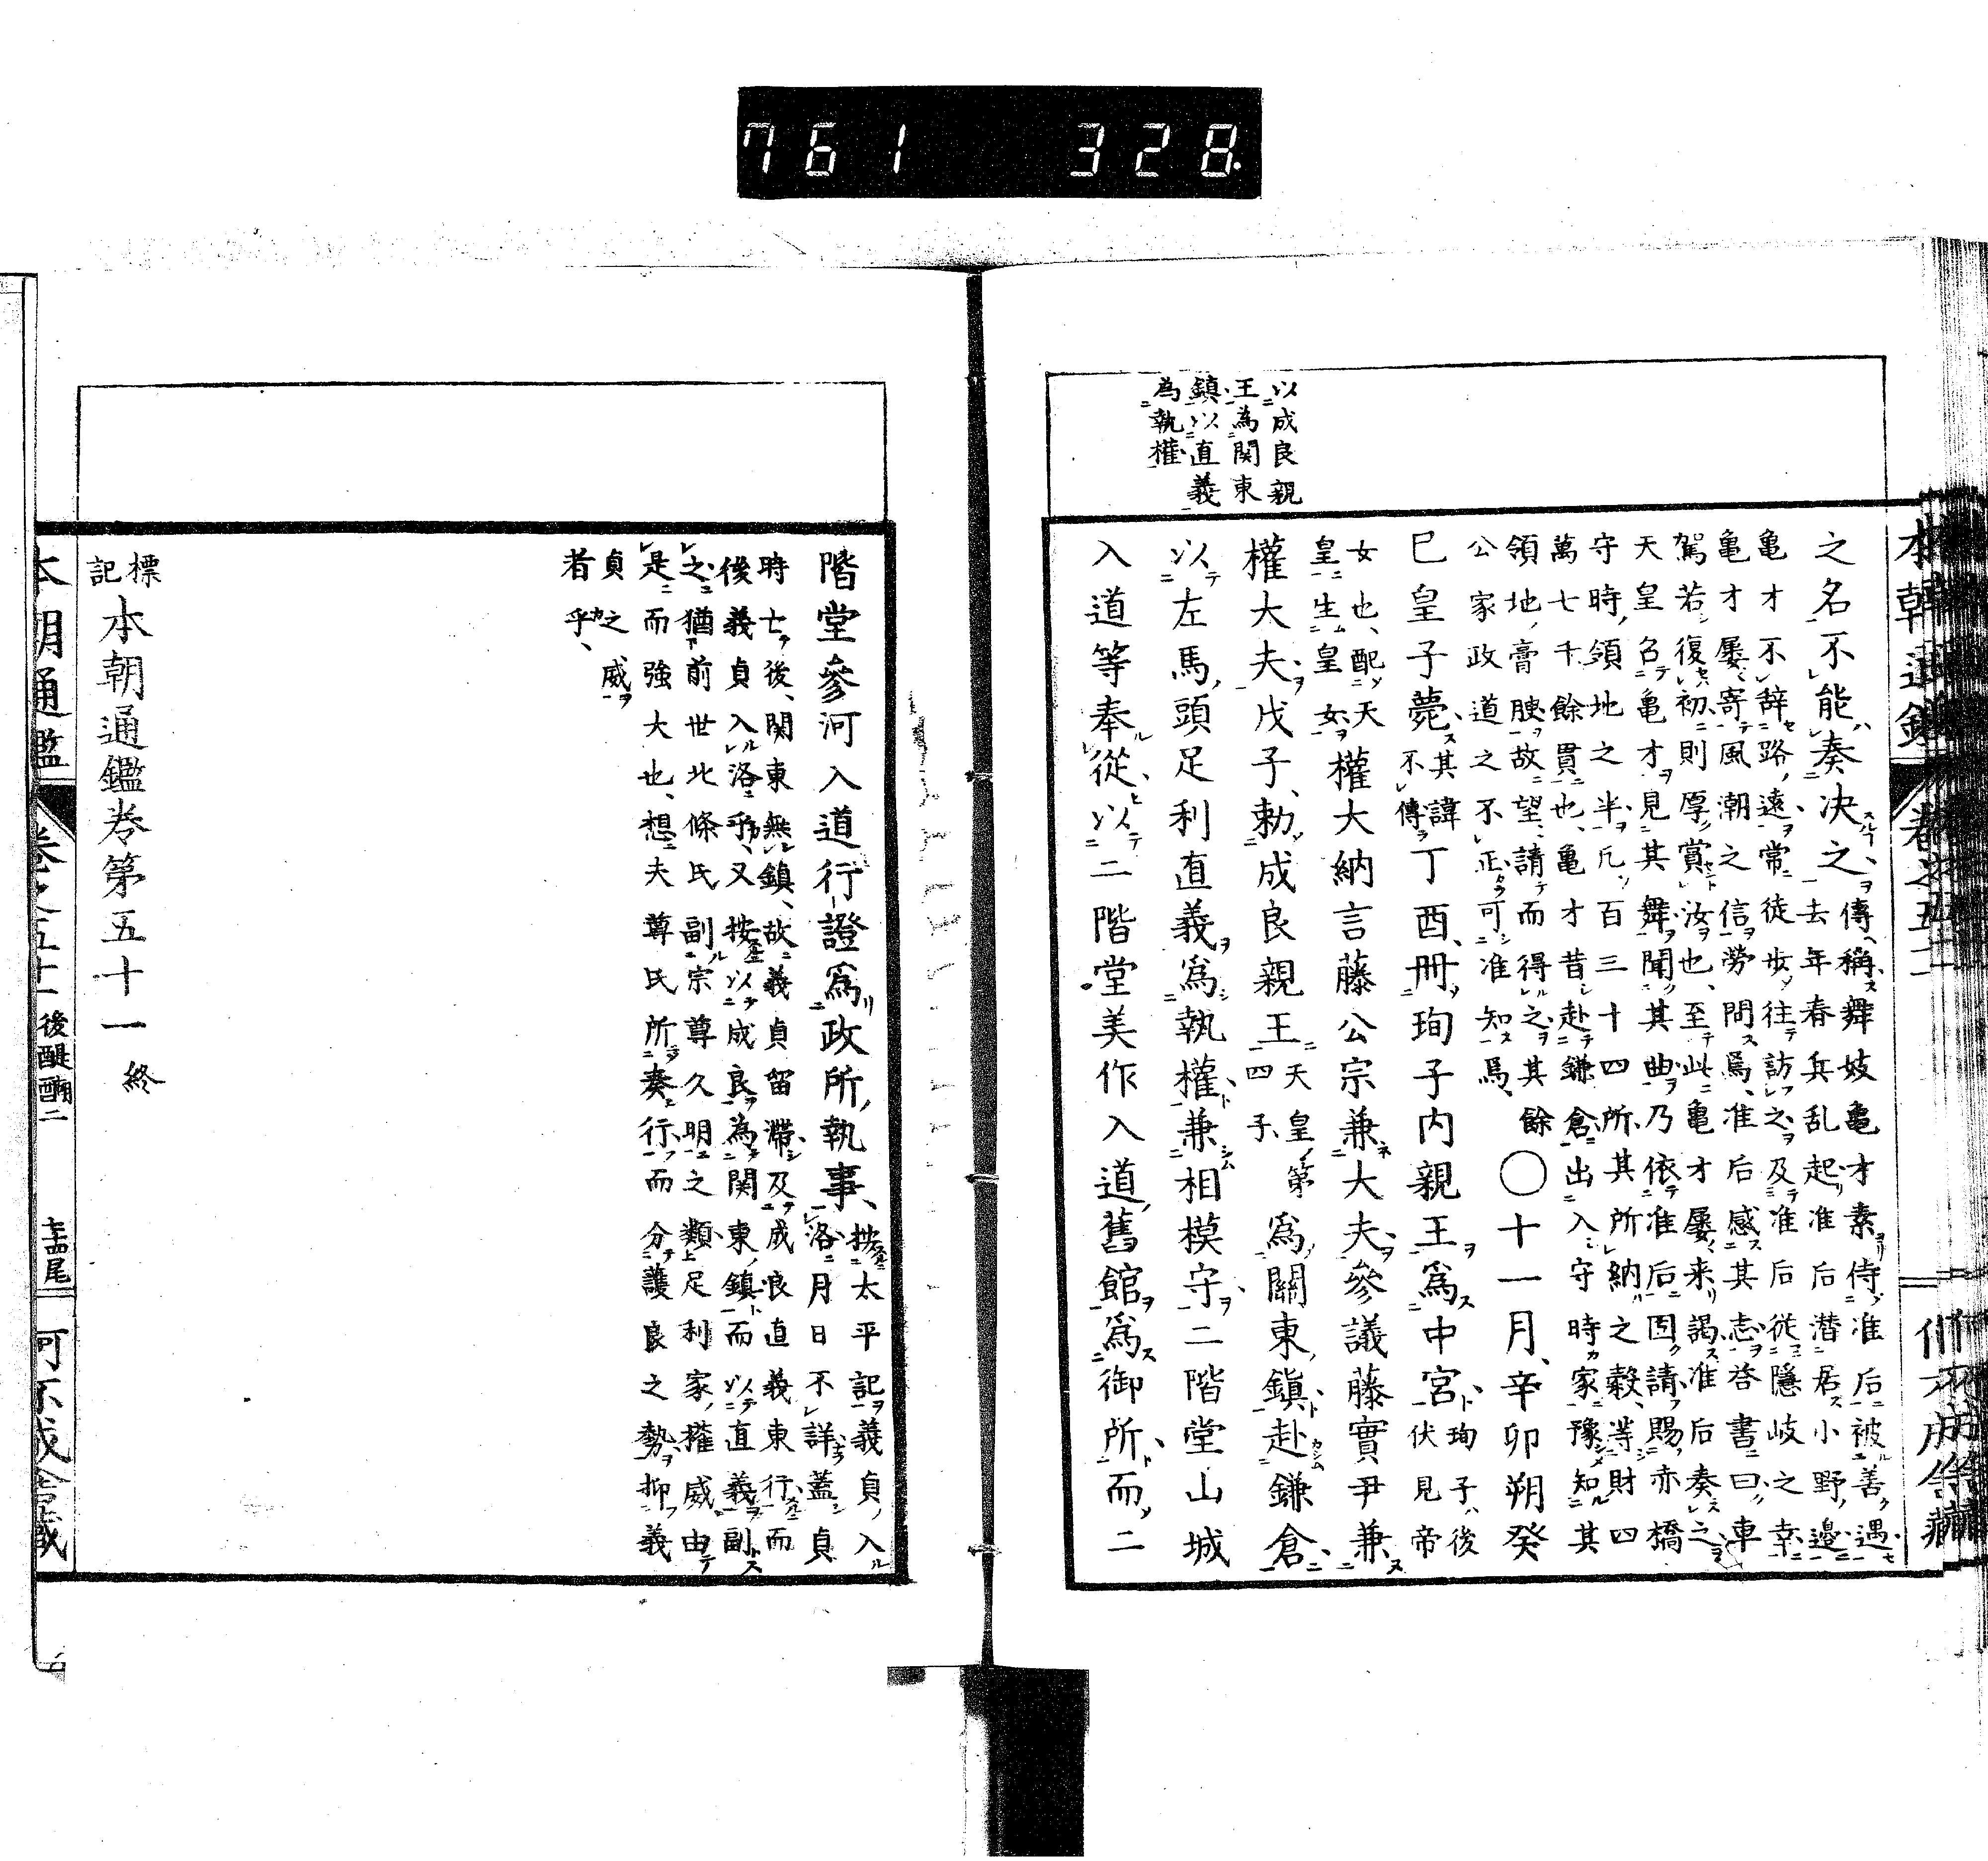 761 328
以成良親
王為関東
鎮以直義
為執權
之名不能奏决之
傳稱舞妓亀才素侍准后被善遇
去年春兵乱起准后潜居小野邊
亀才不辞路遠常徒歩往訪之及准后従隠岐之幸
亀才屡寄風潮之信勞問焉准后感其志荅書曰車
駕若復初則厚賞汝也至此亀才屡来謁准后奏之
天皇召亀才見其舞聞其曲乃依准后固請賜赤橋
守時領地之半凡百三十四所其所納之穀等財四
萬七千餘貫也亀才昔赴鎌倉出入守時家豫知其
領地膏腴故望請而得之其餘
公家政道之不正可准知焉
〇十一月辛卯朔癸
巳皇子薨
其諱
不傳
丁酉冊珣子内親王為中宮
珣子後
伏見帝
女也配天
皇生皇女
權大納言藤公宗兼大夫參議藤實尹兼
權大夫戊子勅成良親王
天皇第
四子
為關東鎮赴鎌倉
以左馬頭足利直義為執權兼相模守二階堂山城
入道等奉従以二階堂美作入道舊館為御所而二
階堂參河入道行證為政所執事
按太平記義貞入
洛月日不詳蓋貞
時亡後関東無鎮故義貞留滯及成良直義東行而
後義貞入洛乎又按以成良為関東鎮而以直義副
之猶前世北條氏副宗尊久明之類足利家權威由
是而強大也想夫尊氏所奏行而分護良之勢抑義
貞之威
者乎
標記 本朝通鑑巻第五十一 終
本朝通鑑 巻之五十一 後醍醐二